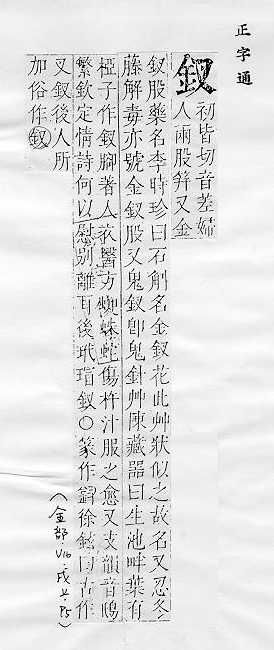 正字通
釵
初皆切音差婦
人兩股筓又金
釵股藥名李時珍曰石斛名金釵花此艸狀似之故名又忍冬
藤解毒亦號金釵股又鬼釵卽鬼針艸陳藏器曰生池畔葉有
椏子作釵腳著人衣醫方蜘蛛蛇傷杵汁服之愈又支韻音鴟
繁欽定情詩何以慰別離耳後玳瑁釵○篆作釵徐鉉曰古作
叉釵後人所
加俗作釵
(金部.V10.戌上.P5)